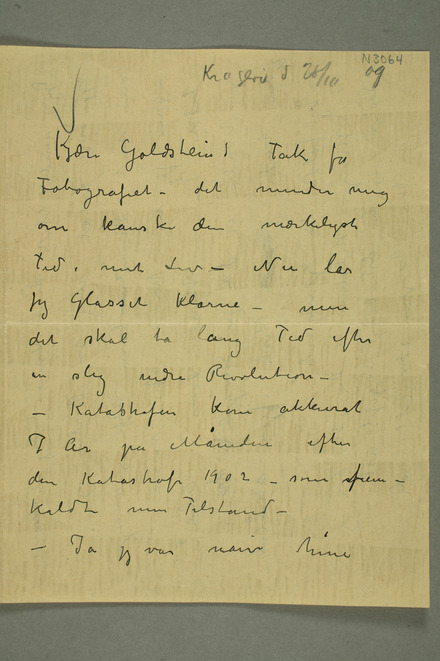 N3064
Kragerø d 28/10 09
Kjære Goldstein! Tak for
Fotografiet – det minder mig
om kanske den mærkeligste
Tid i mit Liv – Nu lar
jeg Glasset klarne – men
det skal ta lang Tid efter
en slig indre Revolution –
– Katastrofen kom akkurat
7 Ar på Måneden efter
den Katastrofe 1902 – som frem-
kaldte min Tilstand –
– Ja jeg var naiv hine